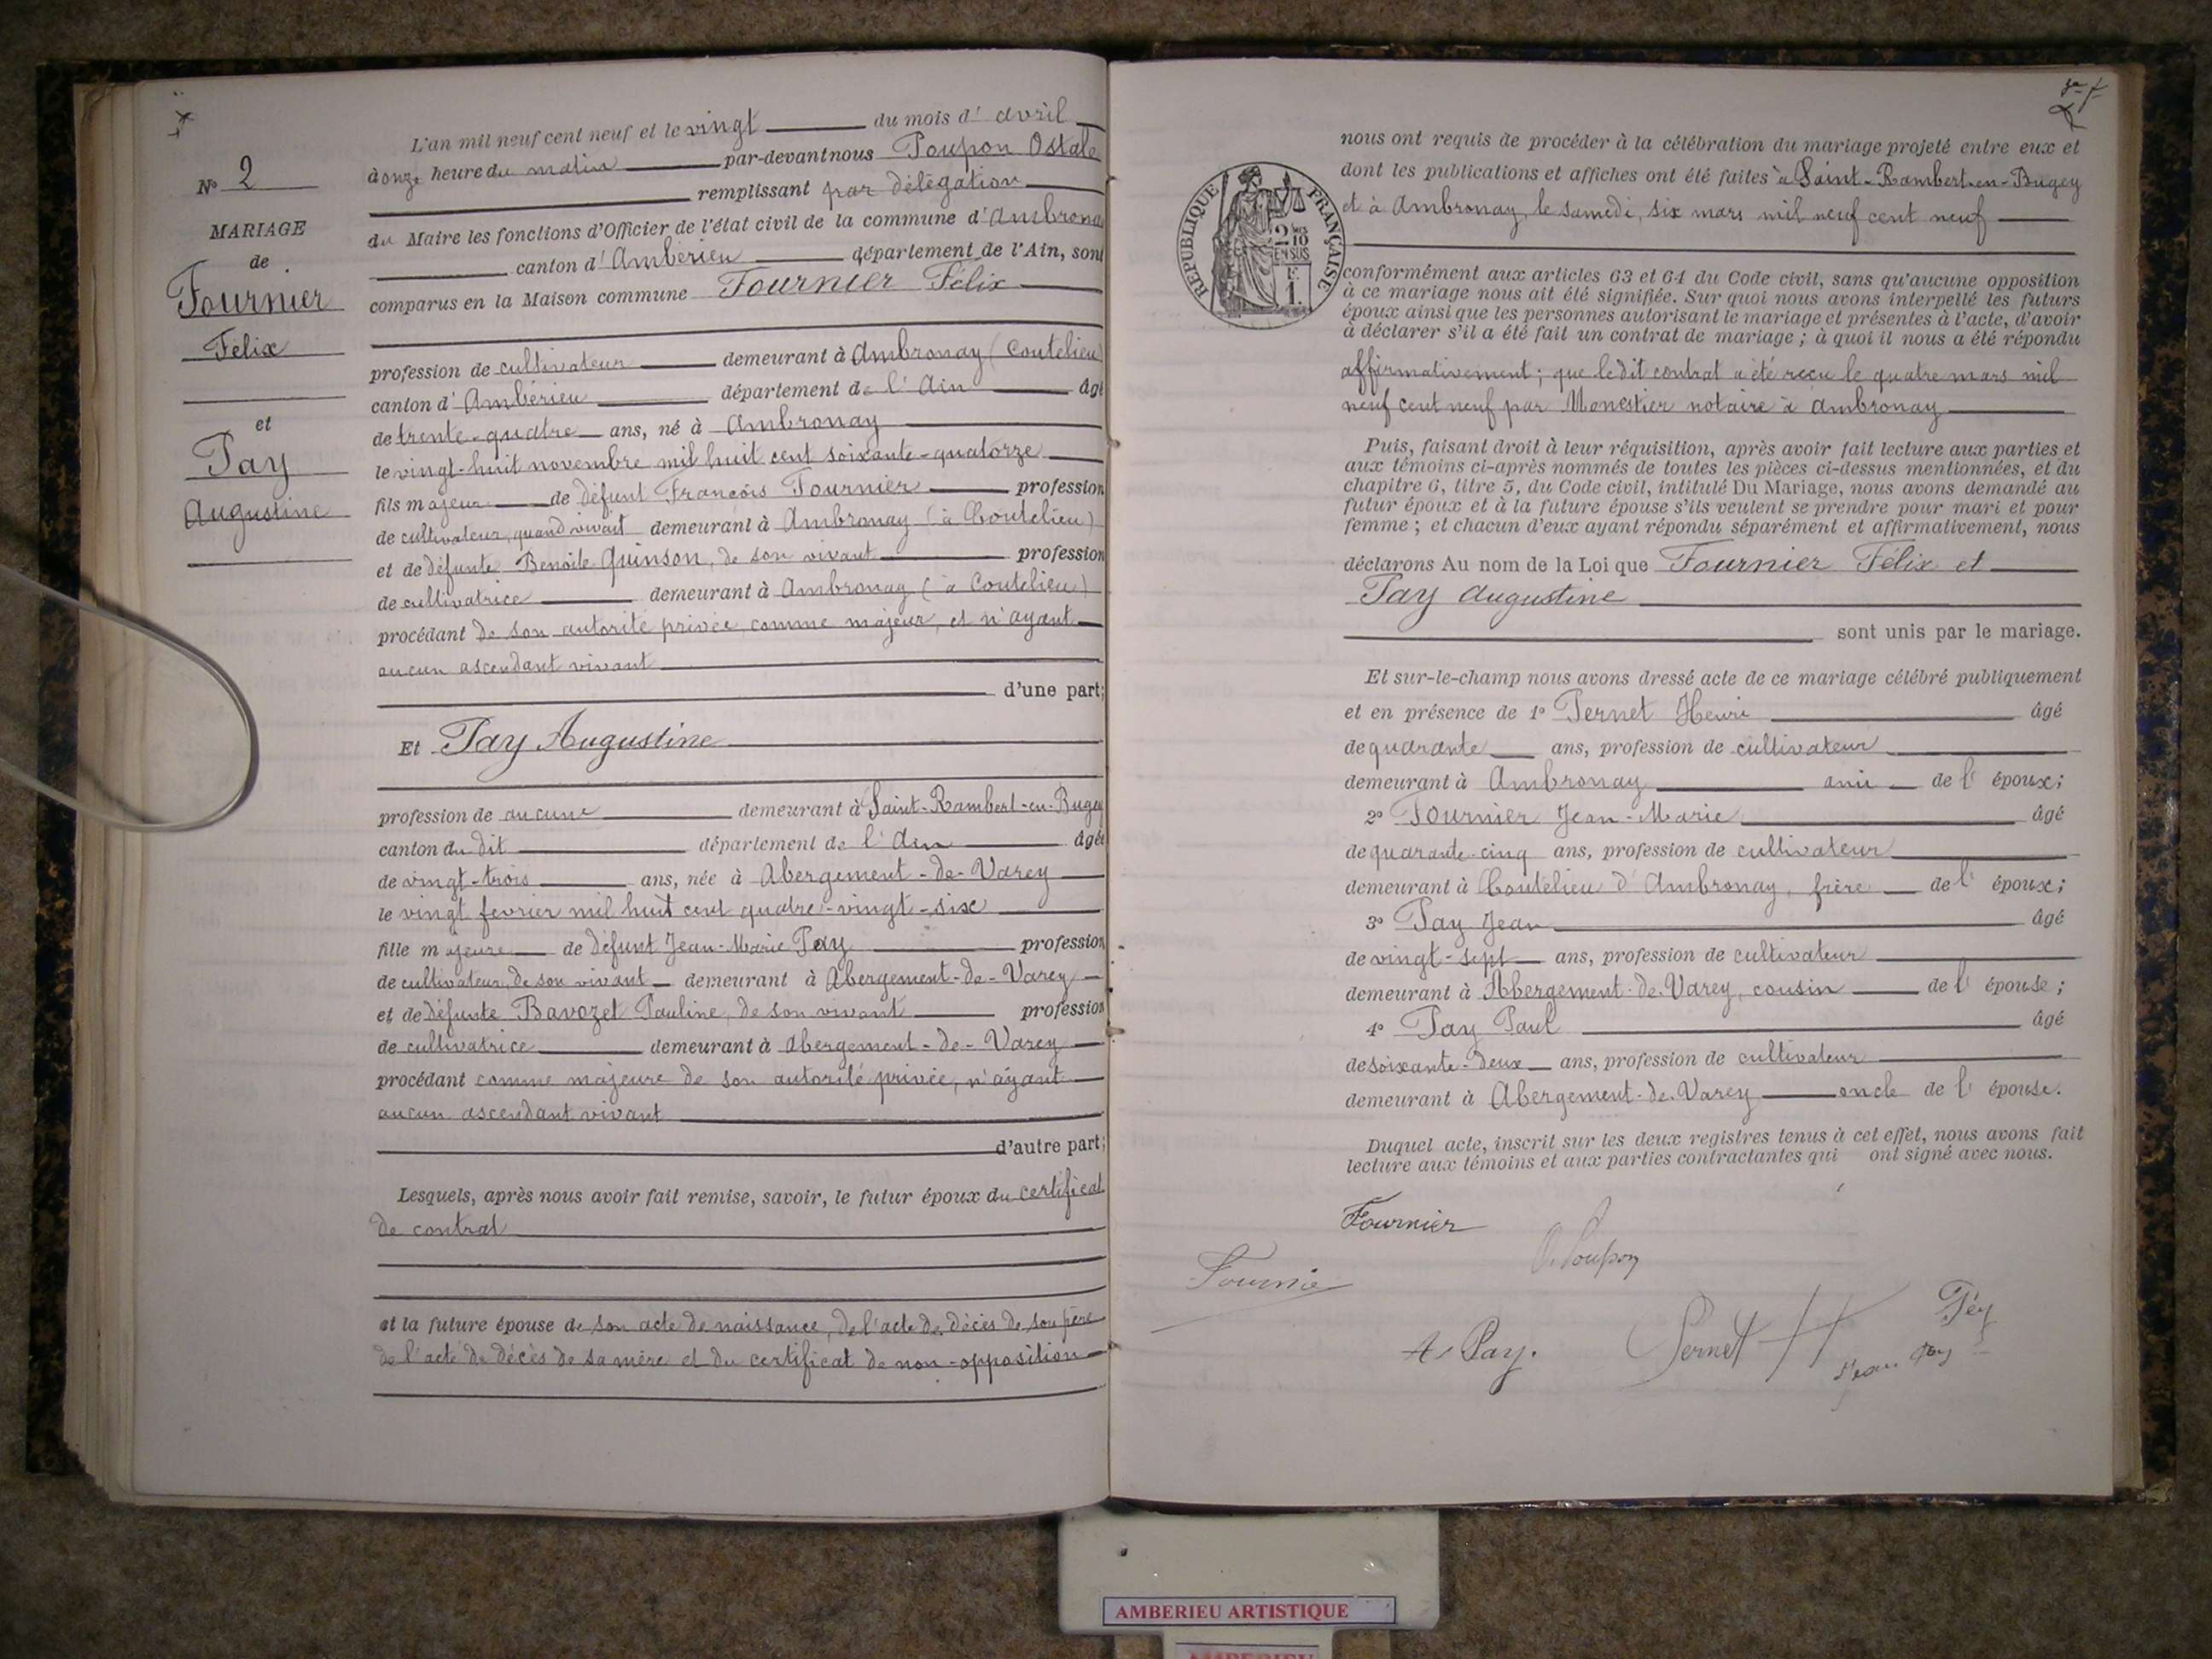 N° 2
MARIAGE
de
Fournier
Félix
et
Pay
Augustine
L'an mil neuf cent neuf et le vingt du mois d'avril
à onze heure du matin par-devant nous Poupon Ostale
remplissant par délégation
du Maire les fonctions d'Officier de l'état civil de la commune d'Ambronay
canton d'Ambérieu département de l'Ain, sont
comparus en la Maison commune Fournier Félix
profession de cultivateur demeurant à Ambronay (Coutelieu)
canton d'Ambérieu département de l'Ain âgé
de trente-quatre ans, né à Ambronay
le vingt-huit novembre mil huit cent soixante-quatorze
fils majeur de défunt François Fournier profession
de cultivateur, quand vivait demeurant à Ambronay (à Coutelieu)
et de défunte Benoite Quinson, de son vivant profession
de cultivatrice demeurant à Ambronay (à Coutelieu)
procédant de son autorité privée, comme majeur, et n'ayant
aucun ascendant vivant
d'une part;
Et Pay Augustine
profession de aucune demeurant à Saint-Rambert-en-Bugey
canton du dit département de l'Ain âgée
de vingt-trois ans, née à Abergement-de-Varey
le vingt fevrier mil huit cent quatre-vingt-six
fille majeure de défunt Jean-Marie Pay profession
de cultivateur, de son vivant demeurant à Abergement-de-Varey
et de défunte Bavozet Pauline, de son vivant profession
de cultivatrice demeurant à Abergement-de-Varey
procédant comme majeure de son autorité privée, n'ayant
aucun ascendant vivant
d'autre part;
Lesquels, après nous avoir fait remise, savoir, le futur époux du certificat
de contrat
et la future épouse de son acte de naissance, de l'acte de décès de son père
de l'acte de décès de sa mère et du certificat de non-opposition
nous ont requis de procéder à la célébration du mariage projeté entre eux et
dont les publications et affiches ont été faites à Saint-Rambert-en-Bugey
et à Ambronay, le samedi, six mars mil neuf cent neuf
RÉPUBLIQUE FRANÇAISE
2 10
EN SUS
F.
1.
conformément aux articles 63 et 64 du Code civil, sans qu'aucune opposition
à ce mariage nous ait été signifiée. Sur quoi nous avons interpellé les futurs
époux ainsi que les personnes autorisant le mariage et présentes à l'acte, d'avoir
à déclarer s'il a été fait un contrat de mariage ; à quoi il nous a été répondu
affirmativement ; que le dit contrat a été reçu le quatre mars mil
neuf cent neuf par Monestier notaire à Ambronay
Puis, faisant droit à leur réquisition, après avoir fait lecture aux parties et
aux témoins ci-après nommés de toutes les pièces ci-dessus mentionnées, et du
chapitre 6, titre 5, du Code civil, intitulé Du Mariage, nous avons demandé au
futur époux et à la future épouse s'ils veulent se prendre pour mari et pour
femme ; et chacun d'eux ayant répondu séparément et affirmativement, nous
déclarons Au nom de la Loi que Fournier Félix et
Pay Augustine
sont unis par le mariage.
Et sur-le-champ nous avons dressé acte de ce mariage célébré publiquement
et en présence de 1° Pernet Henri âgé
de quarante ans, profession de cultivateur
demeurant à Ambronay ami de l'époux;
2° Fournier Jean-Marie âgé
de quarante-cinq ans, profession de cultivateur
demeurant à Coutelieu d'Ambronay, frère de l'époux;
3° Pay Jean âgé
de vingt-sept ans, profession de cultivateur
demeurant à Abergement-de-Varey, cousin de l'épouse ;
4° Pay Paul âgé
de soixante-deux ans, profession de cultivateur
demeurant à Abergement-de-Varey oncle de l'épouse.
Duquel acte, inscrit sur les deux registres tenus à cet effet, nous avons fait
lecture aux témoins et aux parties contractantes qui ont signé avec nous.
Fournier
O. Poupon
Fournie
A. Pay.
Pernet H
Jean Pay
Péy
AMBERIEU ARTISTIQUE
AMBERIEU